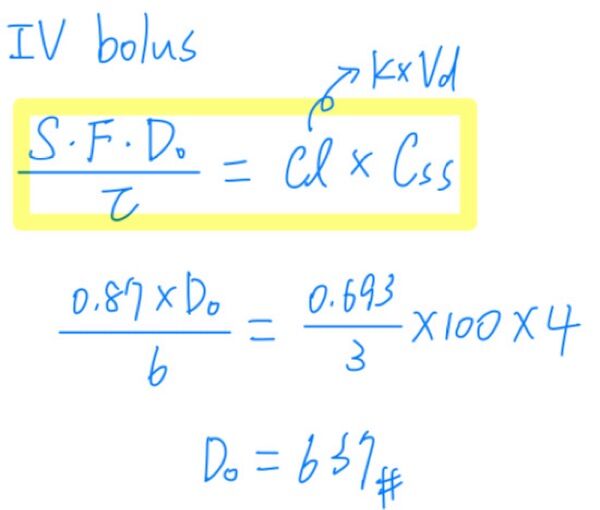 IV bolus
→ k×Vd
S·F·D₀ / τ = Cl × Css
0.87×D₀ / 6 = 0.693 / 3 ×100×4
D₀ = 637#